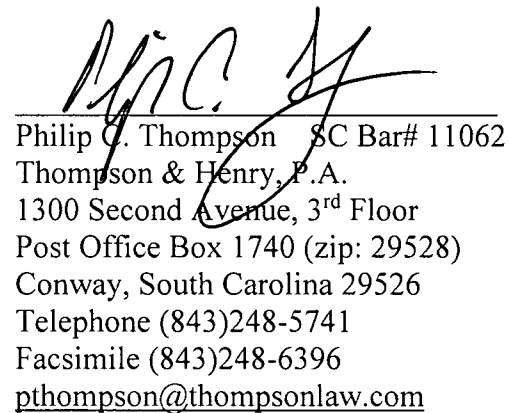 Philip C. Thompson SC Bar# 11062
Thompson & Henry, P.A.
1300 Second Avenue, 3rd Floor
Post Office Box 1740 (zip: 29528)
Conway, South Carolina 29526
Telephone (843)248-5741
Facsimile (843)248-6396
pthompson@thompsonlaw.com